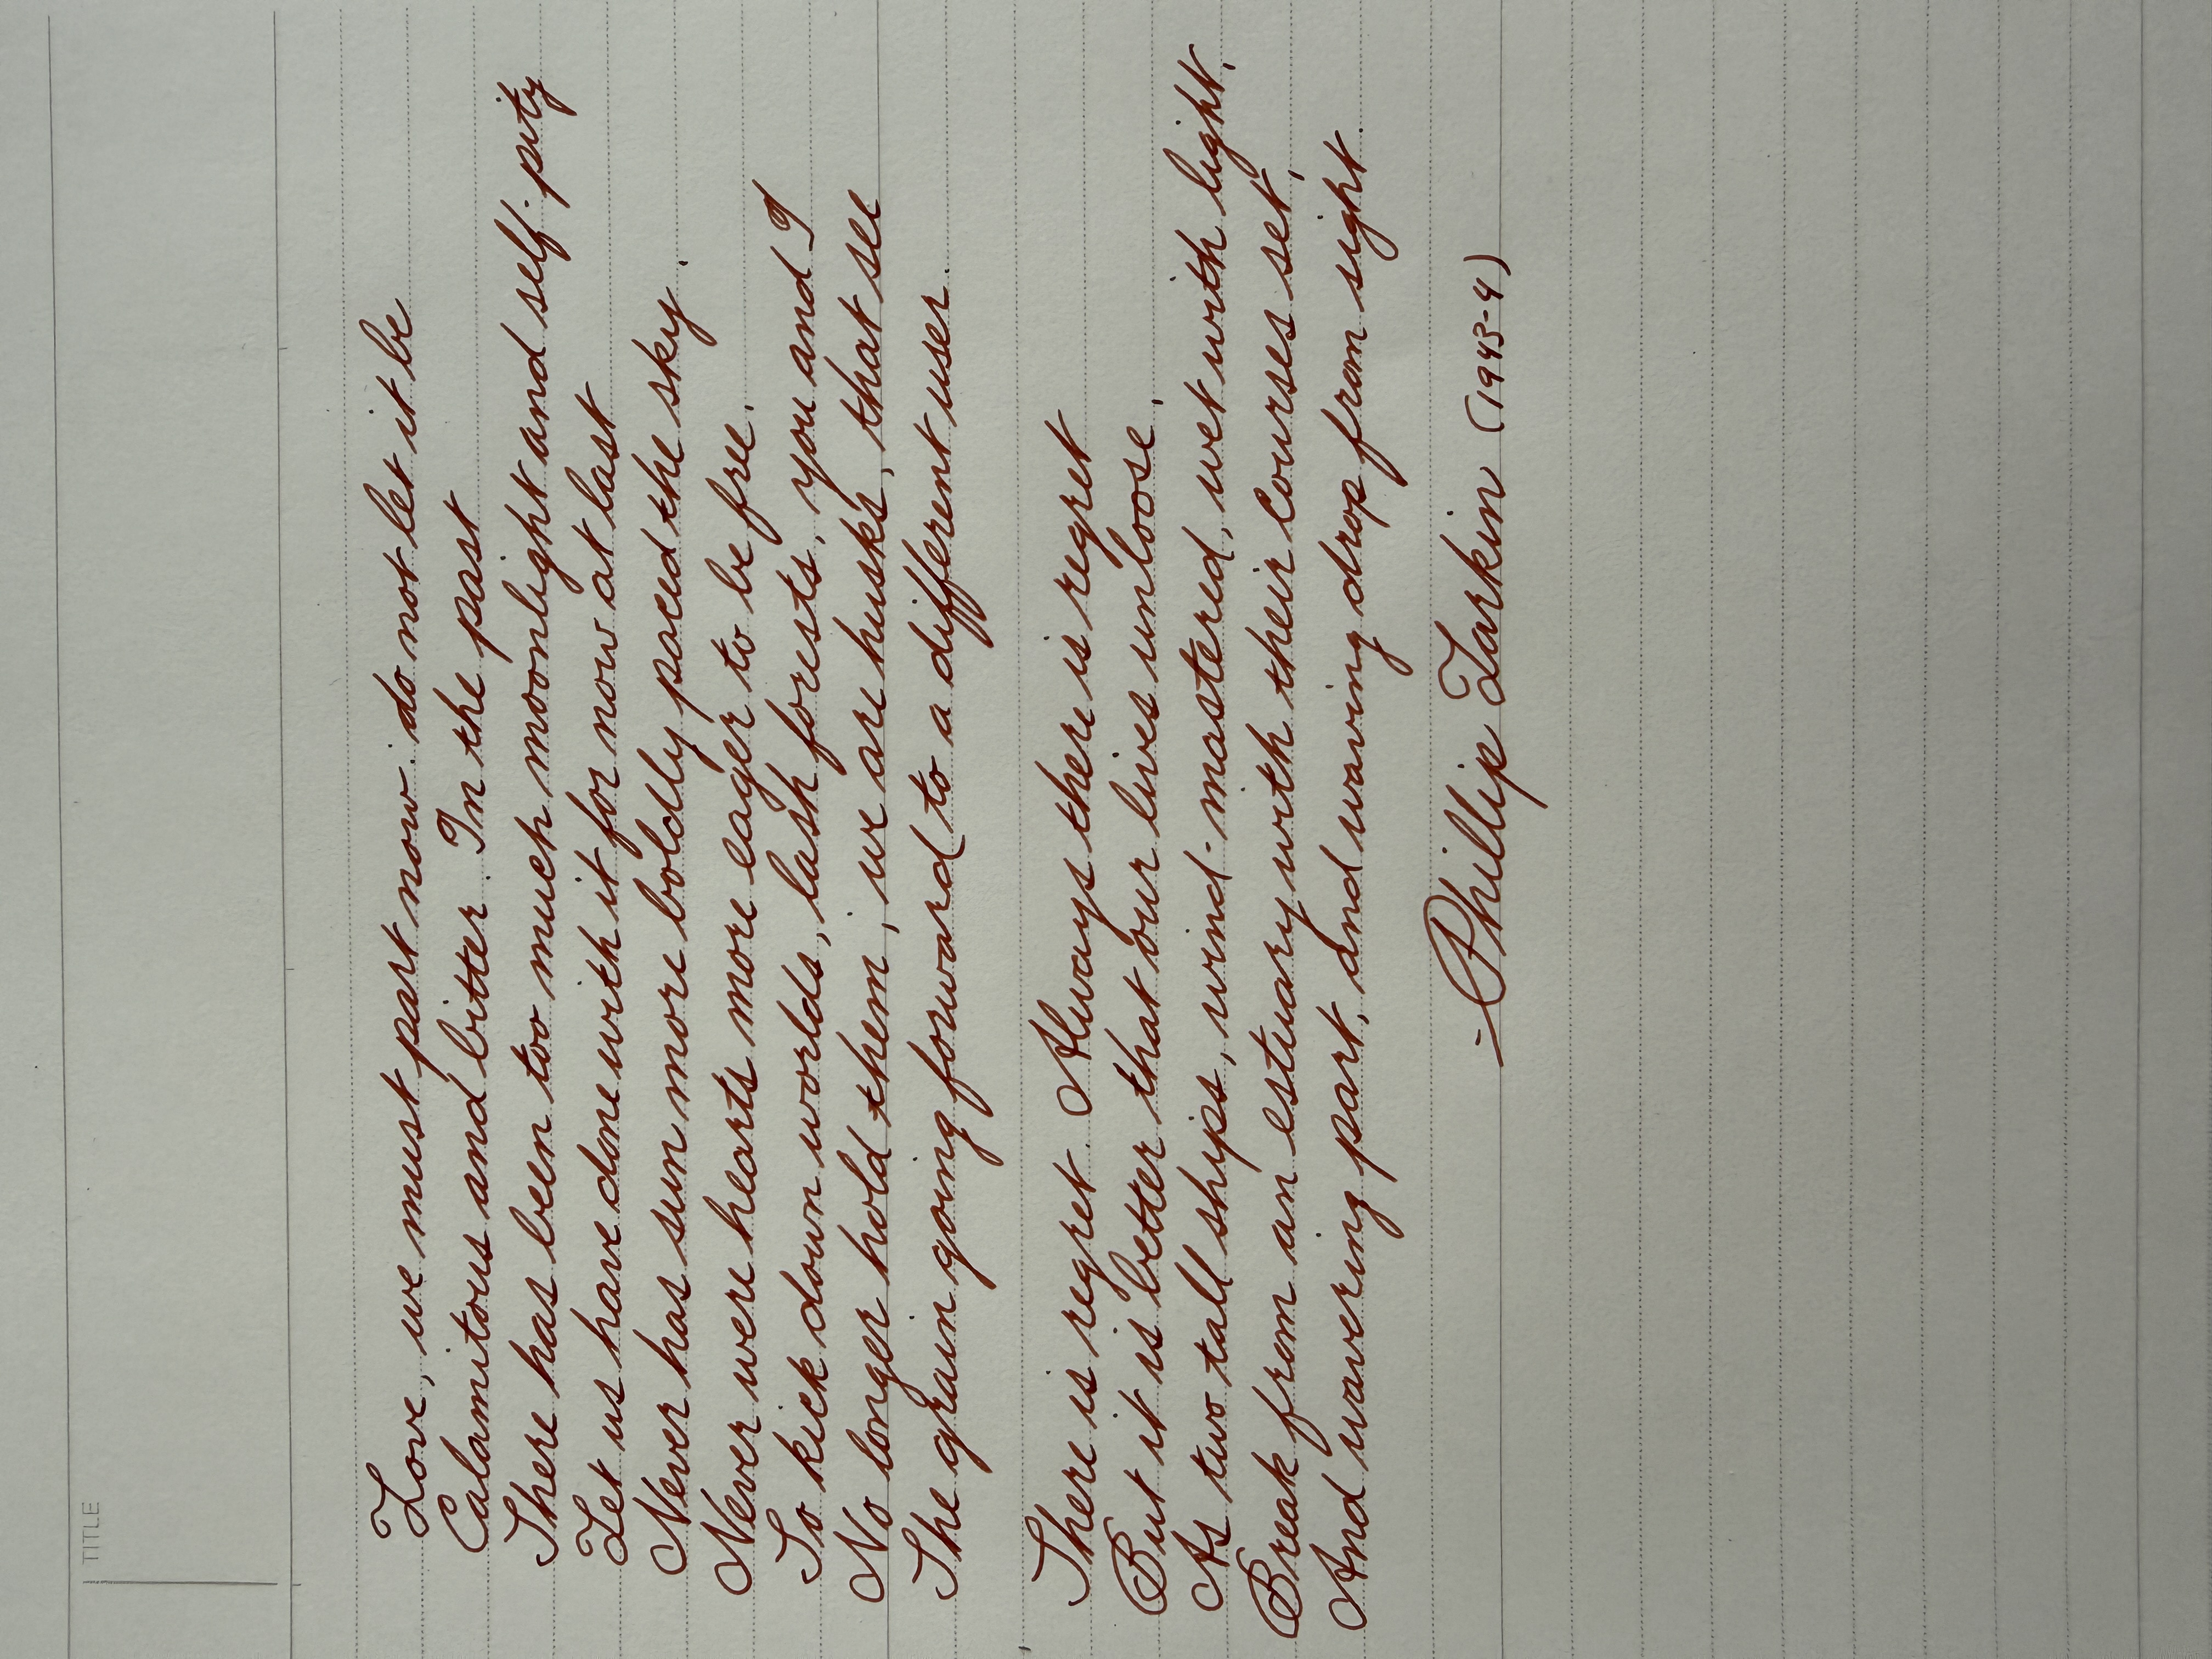 TITLE
Love, we must part now: do not let it be
Calamitous and bitter. In the past
There has been too much moonlight and self-pity
Let us have done with it for now at last
Never has sun more boldly paced the sky.
Never were hearts more eager to be free.
To kick down worlds, lash forests; you and I
No longer hold them; we are husks, that see
The grain going forward to a different user.
There is regret. Always there is regret
But it is better that our lives unloose,
As two tall ships, wind-mastered, wet with light,
Break from an estuary with their courses set,
And wavering part, and waving drop from sight.
- Phillip Larkin (1943-4)